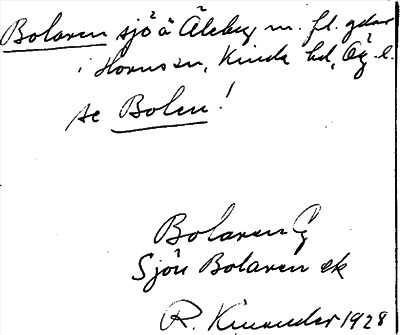 Bolaren sjö å Åleberg m. fl. gdar
i Horns sn, Kinda hd, Ög. l.
se Bolen!
Bolaren G
Sjön Bolaren ek
R. Kinander 1928